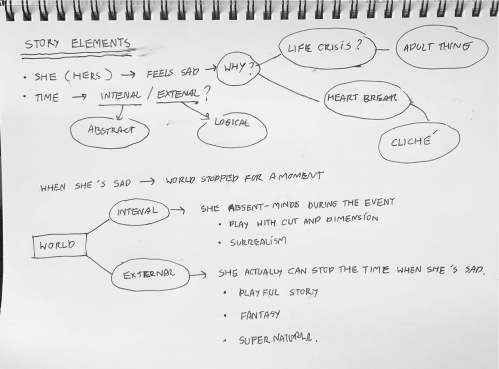 STORY ELEMENTS
• SHE (HERS) → FEELS SAD → WHY?
LIFE CRISIS?
ADULT THING
HEART BREAK
CLICHÉ
• TIME → INTENAL / EXTENAL?
ABSTRACT
LOGICAL
WHEN SHE'S SAD → WORLD STOPPED FOR A MOMENT
WORLD
INTENAL → SHE ABSENT-MINDS DURING THE EVENT
• PLAY WITH CUT AND DIMENSION
• SURREALISM
EXTERNAL → SHE ACTUALLY CAN STOP THE TIME WHEN SHE'S SAD.
• PLAYFUL STORY
• FANTASY
• SUPER NATURAL.